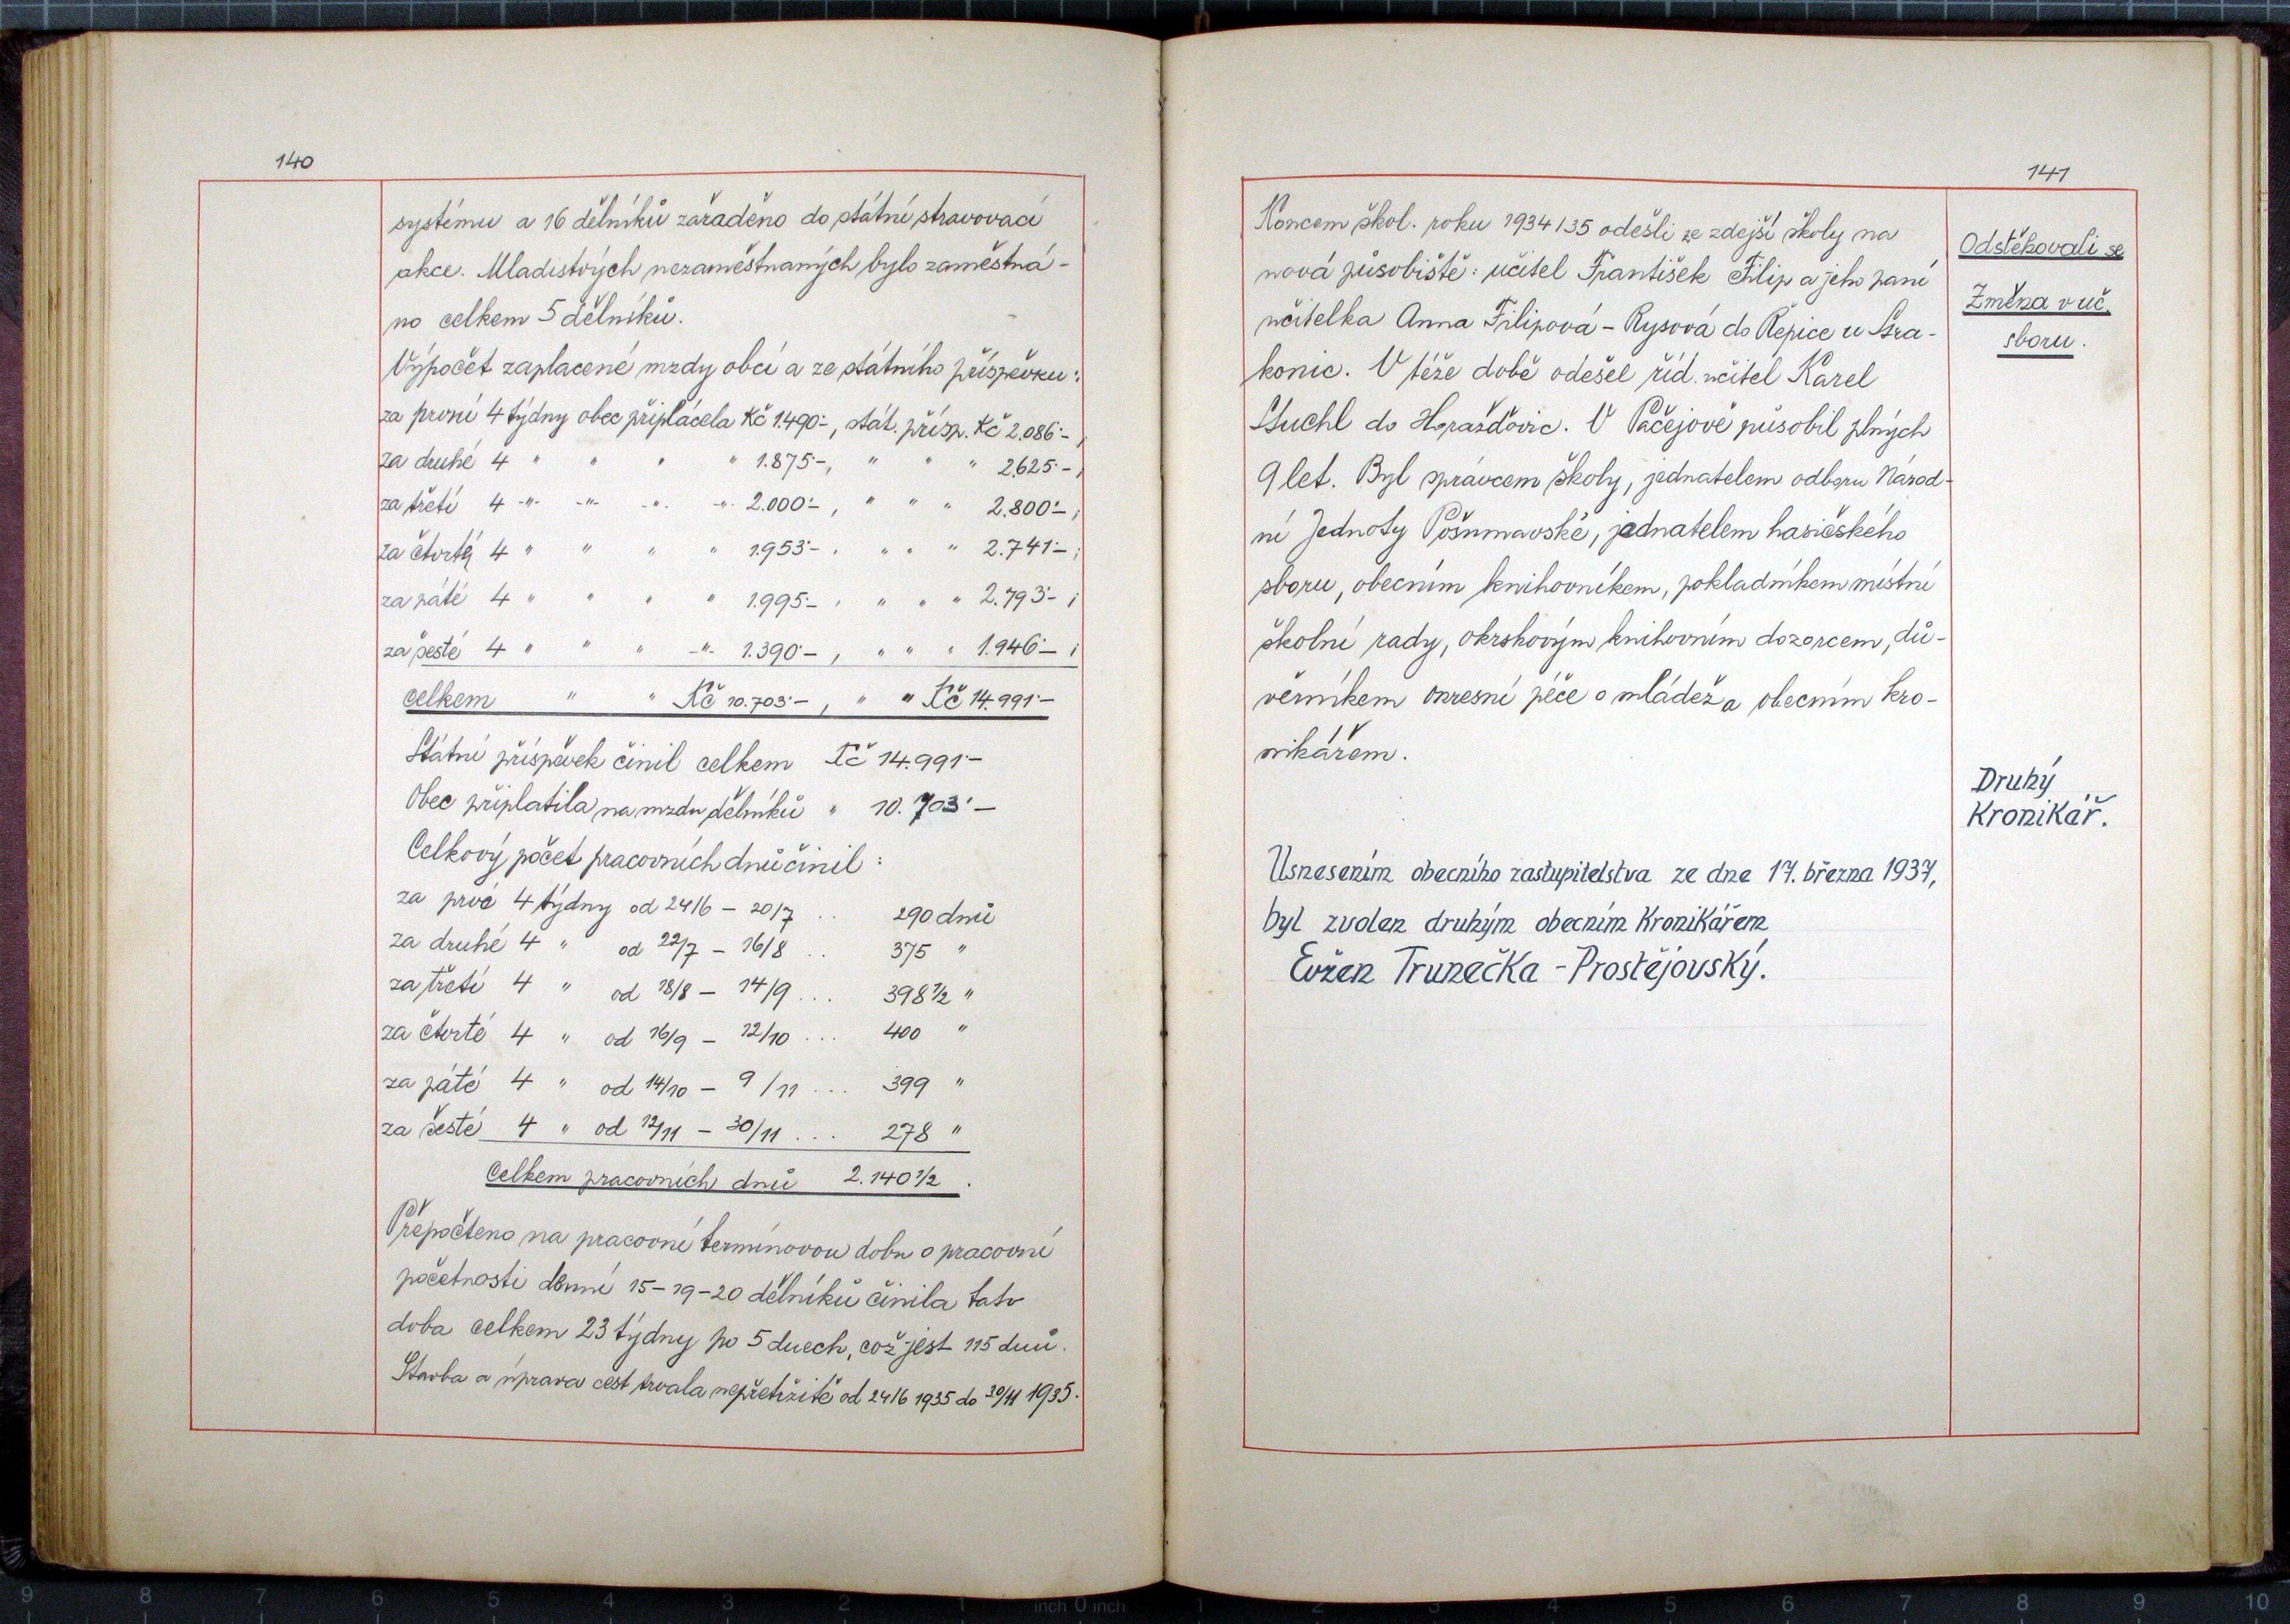 140
systému a 16 dělníků zařaděno do státní stravovací
akce. Mladistvých nezaměstnaných bylo zaměstná-
no celkem 5 dělníků.
Výpočet zaplacené mzdy obcí a ze státního příspěvku:
za první 4 týdny obec připlácela Kč 1.490·-, stát. přísp. Kč 2.086·-;
za druhé 4 " " " " 1.875·-, " " " 2625·-;
za třetí 4 -"- -"- -"- -"- 2.000·-, " " " 2.800·-;
za čtvrtý 4 " " " " 1.953·-, " " " 2.741·-;
za páté 4 " " " " 1.995·-, " " " 2.793·-;
za šesté 4 " " " -"- 1.390·-, " " " 1.946·-;
celkem " " Kč 10.703·-, " " Kč 14.991·-
Státní příspěvek činil celkem Kč 14.991·-
Obec připlatila na mzdu dělníků " 10.703·-
Celkový počet pracovních dnů činil:
za prvé 4 týdny od 24/6 - 20/7 .. 290 dnů
za druhé 4 " od 22/7 - 16/8 .. 375 "
za třetí 4 " od 18/8 - 14/9 ... 398 1/2 "
za čtvrté 4 " od 16/9 - 12/10 ... 400 "
za páté 4 " od 14/10 - 9/11 ... 399 "
za šesté 4 " od 12/11 - 30/11 ... 278 "
Celkem pracovních dnů 2.140 1/2.
Přepočteno na pracovní termínovou dobu o pracovní
početnosti denní 15-19-20 dělníků činila tato
doba celkem 23 týdny po 5 dnech, což jest 115 dnů.
Stavba a úprava cest trvala nepřetržitě od 24/6 1935 do 30/11 1935.
141
Koncem škol. roku 1934/35 odešli ze zdejší školy na
nová působiště: učitel František Filip a jeho paní
učitelka Anna Filipová - Rysová do Řepice u Stra-
konic. V téže době odešel říd. učitel Karel
Stuchl do Horažďovic. V Pačejově působil plných
9 let. Byl správcem školy, jednatelem odboru Národ-
ní Jednoty Pošumavské, jednatelem hasičského
sboru, obecním knihovníkem, pokladníkem místní
školní rady, okrskovým knihovním dozorcem, dů-
věrníkem okresní péče o mládež a obecním kro-
nikářem.
Odstěhovali se
Změna v uč.
sboru.
Druhý
Kronikář.
Usnesením obecního zastupitelstva ze dne 17. března 1937,
byl zvolen druhým obecním Kronikářem
Evžen Trunečka - Prostějovský.